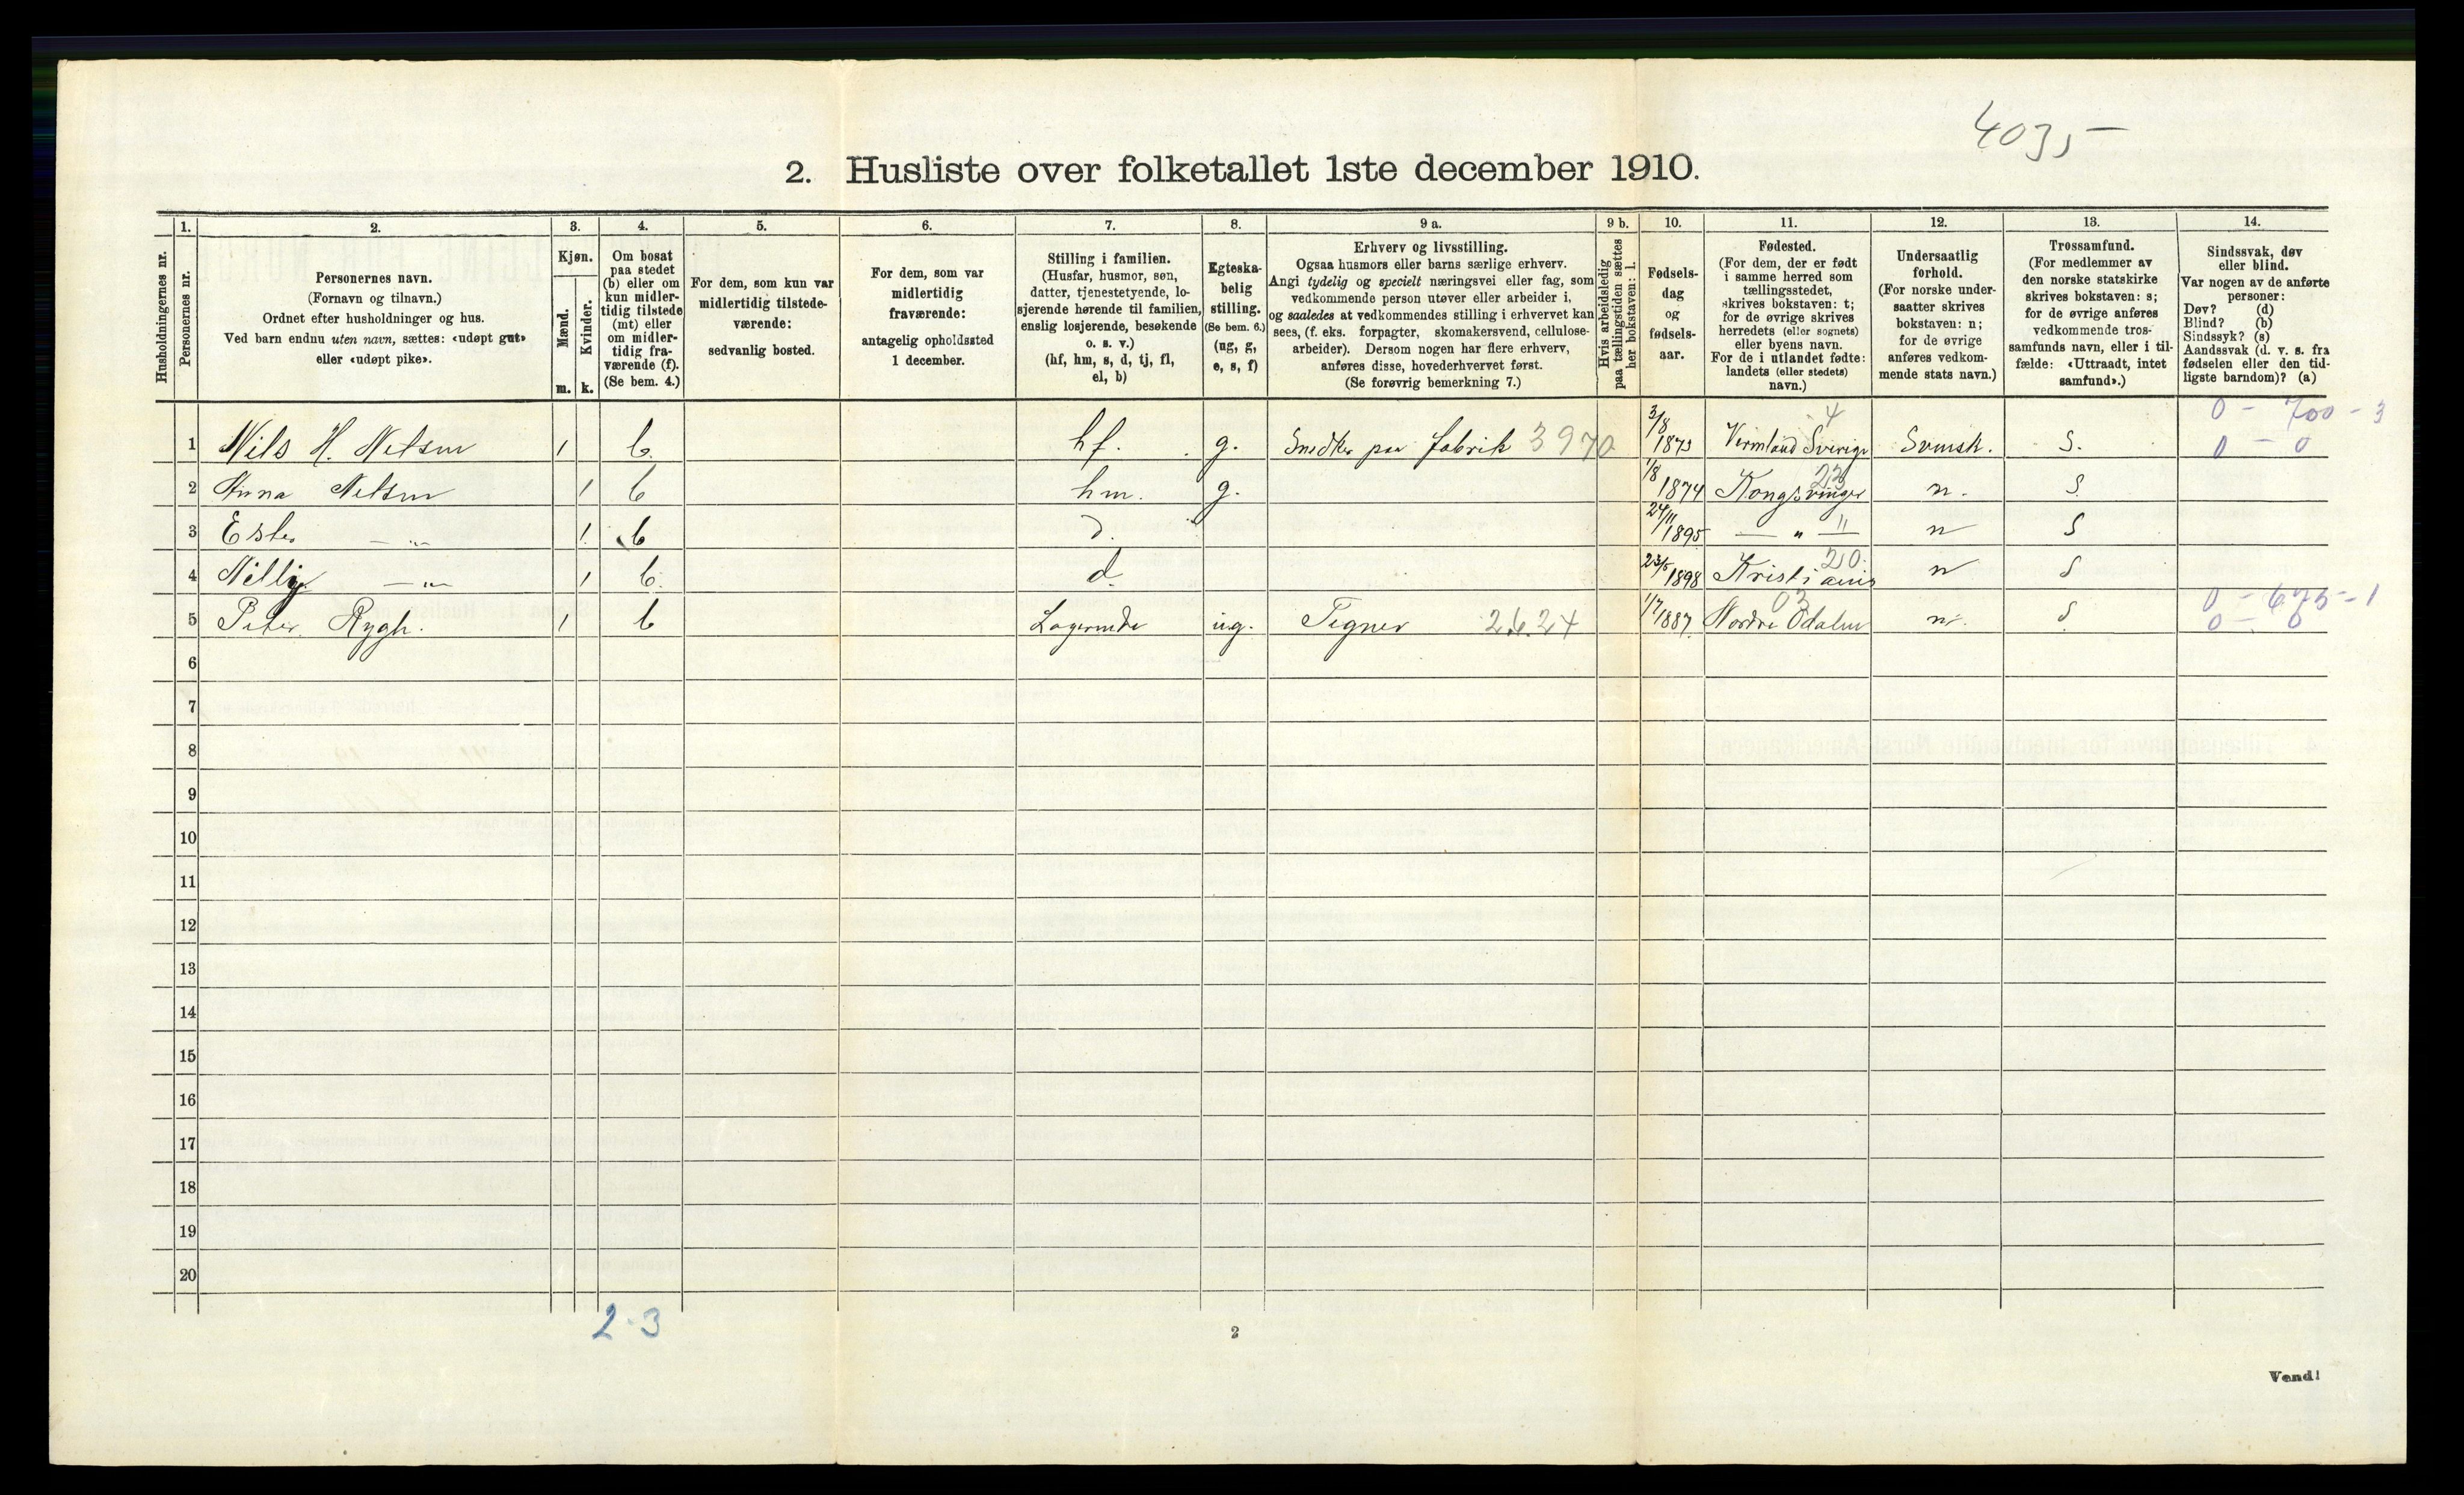 4035 —
2. Husliste over folketallet 1ste december 1910.
Husholdningernes nr.
1.
Personernes nr.
2.
Personernes navn.
(Fornavn og tilnavn.)
Ordnet efter husholdninger og hus.
Ved barn endnu uten navn, sættes: «udøpt gut»
eller «udøpt pike».
3.
Kjøn.
Mænd.
Kvinder.
m. k.
4.
Om bosat
paa stedet
(b) eller om
kun midler-
tidig tilstede
(mt) eller
om midler-
tidig fra-
værende (f).
(Se bem. 4.)
5.
For dem, som kun var
midlertidig tilstede-
værende:
sedvanlig bosted.
6.
For dem, som var
midlertidig
fraværende:
antagelig opholdssted
1 december.
7.
Stilling i familien.
(Husfar, husmor, søn,
datter, tjenestetyende, lo-
sjerende hørende til familien,
enslig losjerende, besøkende
o. s. v.)
(hf, hm, s, d, tj, fl,
el, b)
8.
Egteska-
belig
stilling.
(Se bem. 6.)
(ug, g,
e, s, f)
9 a.
Erhverv og livsstilling.
Ogsaa husmors eller barns særlige erhverv.
Angi tydelig og specielt næringsvei eller fag, som
vedkommende person utøver eller arbeider i,
og saaledes at vedkommendes stilling i erhvervet kan
sees, (f. eks. forpagter, skomakersvend, cellulose-
arbeider). Dersom nogen har flere erhverv,
anføres disse, hovederhvervet først.
(Se forøvrig bemerkning 7.)
9 b.
Hvis arbeidsledig
paa tællingstiden sættes
her bokstaven: l.
10.
Fødsels-
dag
og
fødsels-
aar.
11.
Fødested.
(For dem, der er født
i samme herred som
tællingsstedet,
skrives bokstaven: t;
for de øvrige skrives
herredets (eller sognets)
eller byens navn.
For de i utlandet fødte:
landets (eller stedets)
navn.)
12.
Undersaatlig
forhold.
(For norske under-
saatter skrives
bokstaven: n;
for de øvrige
anføres vedkom-
mende stats navn.)
13.
Trossamfund.
(For medlemmer av
den norske statskirke
skrives bokstaven: s;
for de øvrige anføres
vedkommende tros-
samfunds navn, eller i til-
fælde: «Uttraadt, intet
samfund».)
14.
Sindssvak, døv
eller blind.
Var nogen av de anførte
personer:
Døv? (d)
Blind? (b)
Sindssyk? (s)
Aandssvak (d. v. s. fra
fødselen eller den tid-
ligste barndom)? (a)
1 Nils H. Nelsen 1 b. hf. g. Snedker paa fabrik 3970 3/8 1873 Vermland Sverige 4 Svensk. S. 0 - 700 - 3 0 - 0
2 Anna Nelsen 1 b hm. g. 1/8 1874 Kongsvinger 23 n. S.
3 Ester — „ — 1 b d. 24/11 1895 — „ — 11 n S
4 Nelly — „ — 1 b. d. 23/5 1898 Kristiania 20. n S
5 Peter Rygh. 1 b Logerende ug. Tegner 2624 1/7 1887 Nordre Odalen 03 n. S 0 - 675 - 1 0 - 0
6
7
8
9
10
11
12
13
14
15
16
17
18
19
20
2 - 3
2
Vend!